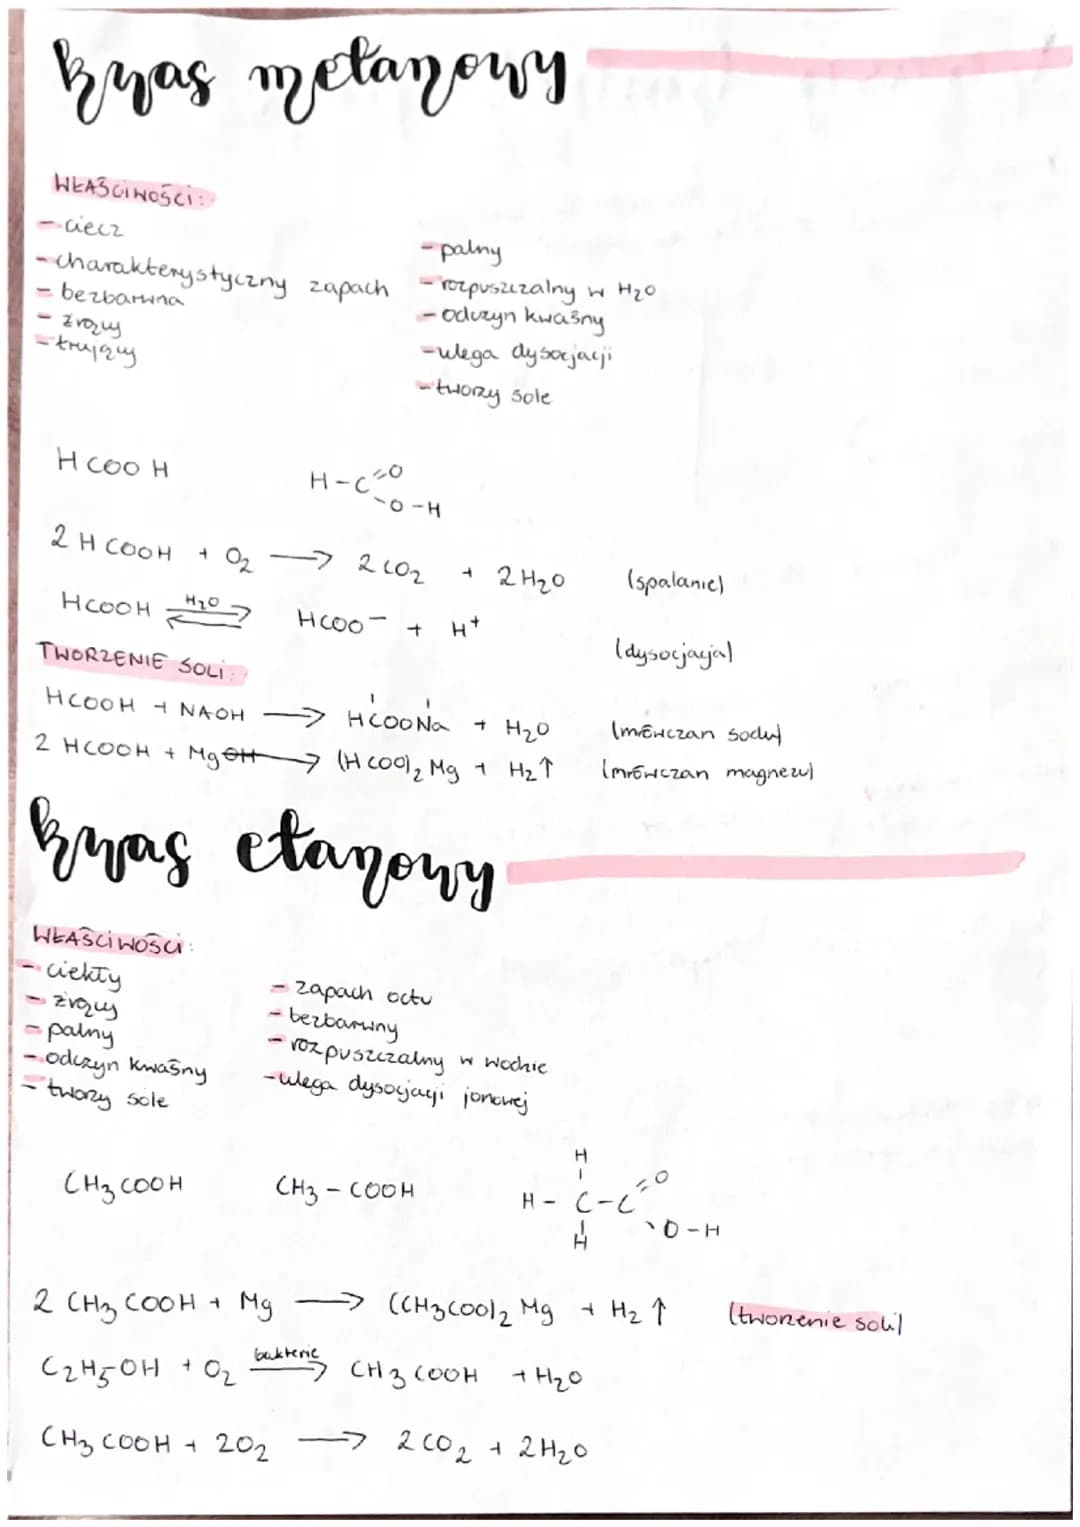 kwas metanowy
WŁAŚCIWOŚCI:
- ciecz
- charakterystyczny zapach
- bezbarwna
- żrący
- trujący
- palny
- rozpuszczalny w H₂O
- odczyn kwaśny
- ulega dysocjacji
- tworzy sole
HCOOH
H-C=O
-O-H
2 HCOOH + O₂ → 2CO₂ + 2H₂O (spalanie)
HCOOH ⇌ H₂O HCOO⁻ + H⁺ (dysocjacja)
TWORZENIE SOLI:
HCOOH + NAOH → HCOONa + H₂O (mrówczan sodu)
2 HCOOH + Mg → (HCOO)₂Mg + H₂↑ (mrówczan magnezu)
kwas etanowy
WŁAŚCIWOŚCI:
- ciekły
- żrący
- palny
- odczyn kwaśny
- tworzy sole
- zapach octu
- bezbarwny
- rozpuszczalny w wodzie
- ulega dysocjacji jonowej
CH₃COOH CH₃ - COOH
H
H - C - C=O
H -O-H
2 CH₃COOH + Mg → (CH₃COO)₂Mg + H₂↑ (tworzenie soli)
C₂H₅OH + O₂ bakterie → CH₃COOH + H₂O
CH₃COOH + 2O₂ → 2CO₂ + 2H₂O